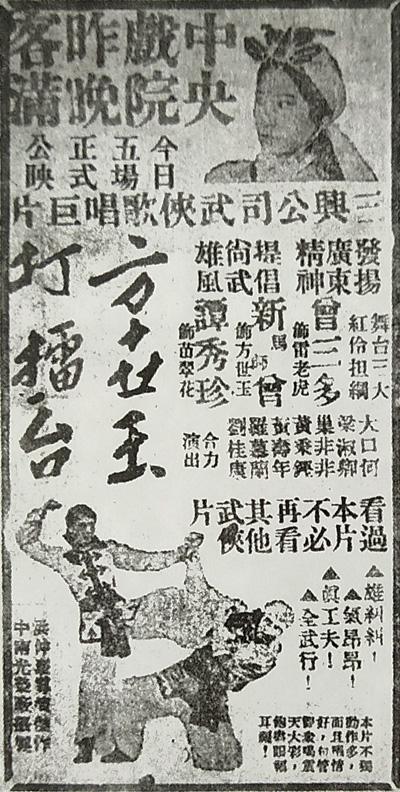 中央戲院昨晚客滿
今日五場正式公映
三興公司武俠歌唱巨片
發揚廣東精神
提倡尚武雄風
舞台三大紅伶担綱
曾三多
飾雷老虎
新馬師曾
飾方世玉
譚秀珍
飾苗翠花
方世玉
打擂台
大口何
梁淑卿
巢非非
黃秉鏗
黃壽年
羅慕蘭
劉桂康
合力演出
看過本片不必再看其他武俠片
▲雄糾糾！
▲氣昂昂！
▲眞工夫！
▲全武行！
本片不獨
動作多，
而且唱情
好，包管
天大彩，
耳癮！